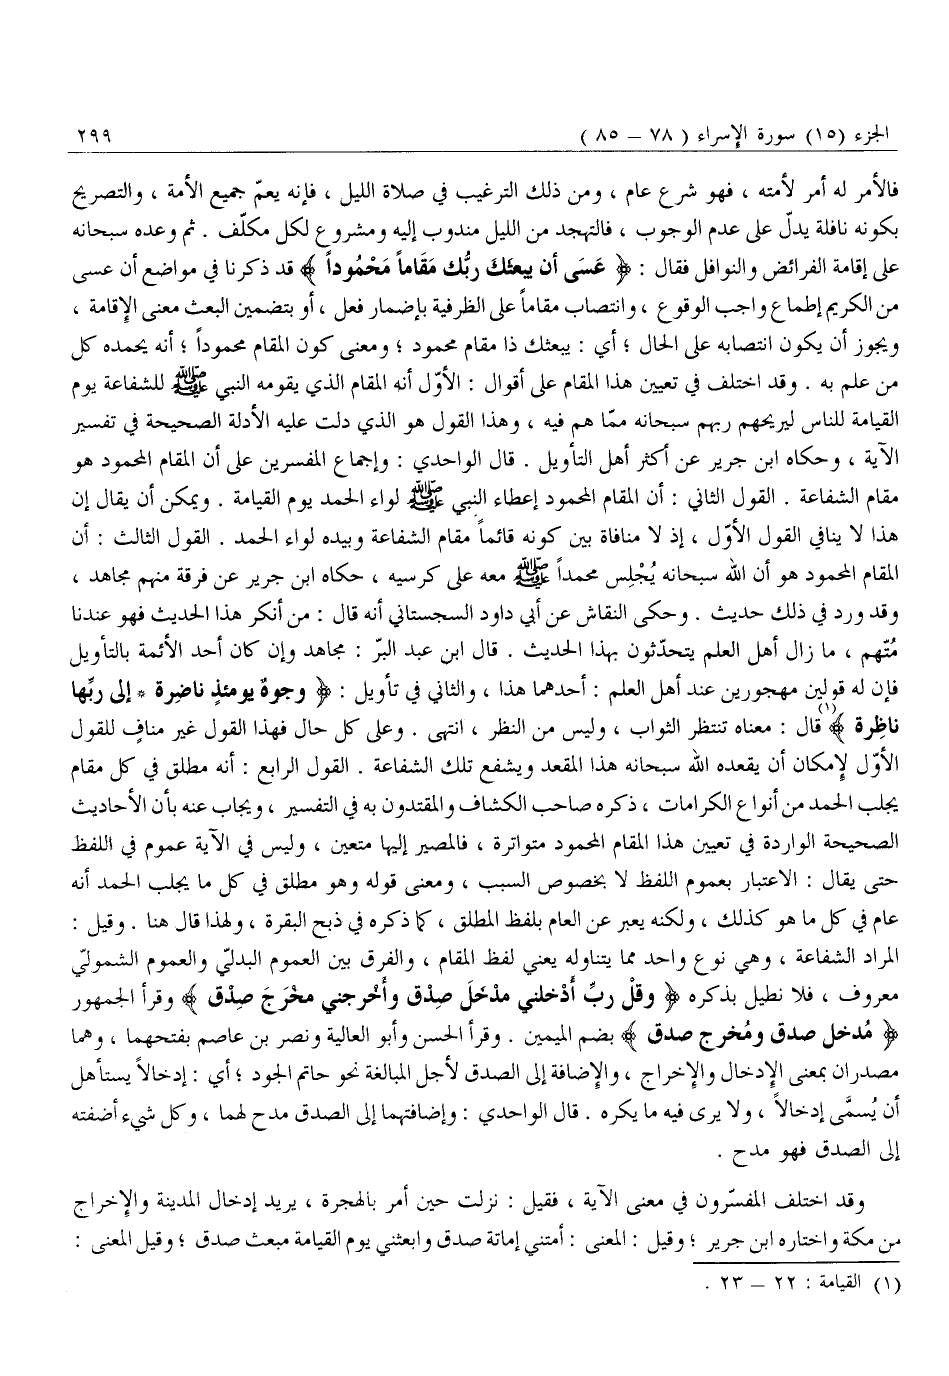 الجزء (١٥) سورة الإسراء ( ٧٨ – ٨٥ ) ٢٩٩
فالأمر له أمر لأمته ، فهو شرع عام ، ومن ذلك الترغيب في صلاة الليل ، فإنه يعمّ جميع الأمة ، والتصريح
بكونه نافلة يدلّ على عدم الوجوب ، فالتهجد من الليل مندوب إليه ومشروع لكل مكلّف . ثم وعده سبحانه
على إقامة الفرائض والنوافل فقال : ﴿ عَسَى أن يبعثَكَ ربُّك مَقَاماً مَحْمُوداً ﴾ قد ذكرنا في مواضع أن عسى
من الكريم إطماع واجب الوقوع ، وانتصاب مقاماً على الظرفية بإضمار فعل ، أو بتضمين البعث معنى الإقامة ،
ويجوز أن يكون انتصابه على الحال ؛ أي : يبعثك ذا مقام محمود ؛ ومعنى كون المقام محموداً ؛ أنه يحمده كل
من علم به . وقد اختلف في تعيين هذا المقام على أقوال : الأوّل أنه المقام الذي يقومه النبي ﷺ للشفاعة يوم
القيامة للناس ليريحهم ربهم سبحانه ممّا هم فيه ، وهذا القول هو الذي دلت عليه الأدلة الصحيحة في تفسير
الآية ، وحكاه ابن جرير عن أكثر أهل التأويل . قال الواحدي : وإجماع المفسرين على أن المقام المحمود هو
مقام الشفاعة . القول الثاني : أن المقام المحمود إعطاء النبي ﷺ لواء الحمد يوم القيامة . ويمكن أن يقال إن
هذا لا ينافي القول الأوّل ، إذ لا منافاة بين كونه قائماً مقام الشفاعة وبيده لواء الحمد . القول الثالث : أن
المقام المحمود هو أن الله سبحانه يُجْلِس محمداً ﷺ معه على كرسيه ، حكاه ابن جرير عن فرقة منهم مجاهد ،
وقد ورد في ذلك حديث . وحكى النقاش عن أبي داود السجستاني أنه قال : من أنكر هذا الحديث فهو عندنا
مُتّهم ، ما زال أهل العلم يتحدّثون بهذا الحديث . قال ابن عبد البرّ : مجاهد وإن كان أحد الأئمة بالتأويل
فإن له قولين مهجورين عند أهل العلم : أحدهما هذا ، والثاني في تأويل : ﴿ وجوهٌ يومئذٍ ناضِرة * إلى ربِّها
ناظِرة ﴾(١) قال : معناه تنتظر الثواب ، وليس من النظر ، انتهى . وعلى كل حال فهذا القول غير منافٍ للقول
الأوّل لإمكان أن يقعده الله سبحانه هذا المقعد ويشفع تلك الشفاعة . القول الرابع : أنه مطلق في كل مقام
يجلب الحمد من أنواع الكرامات ، ذكره صاحب الكشاف والمقتدون به في التفسير ، ويجاب عنه بأن الأحاديث
الصحيحة الواردة في تعيين هذا المقام المحمود متواترة ، فالمصير إليها متعين ، وليس في الآية عموم في اللفظ
حتى يقال : الاعتبار بعموم اللفظ لا بخصوص السبب ، ومعنى قوله وهو مطلق في كل ما يجلب الحمد أنه
عام في كل ما هو كذلك ، ولكنه يعبر عن العام بلفظ المطلق ، كما ذكره في ذبح البقرة ، ولهذا قال هنا . وقيل :
المراد الشفاعة ، وهي نوع واحد مما يتناوله يعني لفظ المقام ، والفرق بين العموم البدليّ والعموم الشموليّ
معروف ، فلا نطيل بذكره ﴿ وقلْ ربِّ أَدْخلني مدْخَلَ صِدْق وأَخْرجني مخْرَجَ صِدْق ﴾ وقرأ الجمهور
﴿ مُدخل صدق ومُخرج صدق ﴾ بضم الميمين . وقرأ الحسن وأبو العالية ونصر بن عاصم بفتحهما ، وهما
مصدران بمعنى الإدخال والإخراج ، والإضافة إلى الصدق لأجل المبالغة نحو حاتم الجود ؛ أي : إدخالاً يستأهل
أن يُسمَّى إدخالاً ، ولا يرى فيه ما يكره . قال الواحدي : وإضافتهما إلى الصدق مدح لهما ، وكل شيء أضفته
إلى الصدق فهو مدح .
وقد اختلف المفسّرون في معنى الآية ، فقيل : نزلت حين أمر بالهجرة ، يريد إدخال المدينة والإخراج
من مكة واختاره ابن جرير ؛ وقيل : المعنى : أمتني إماتة صدق وابعثني يوم القيامة مبعث صدق ؛ وقيل المعنى :
(١) القيامة : ٢٢ – ٢٣ .